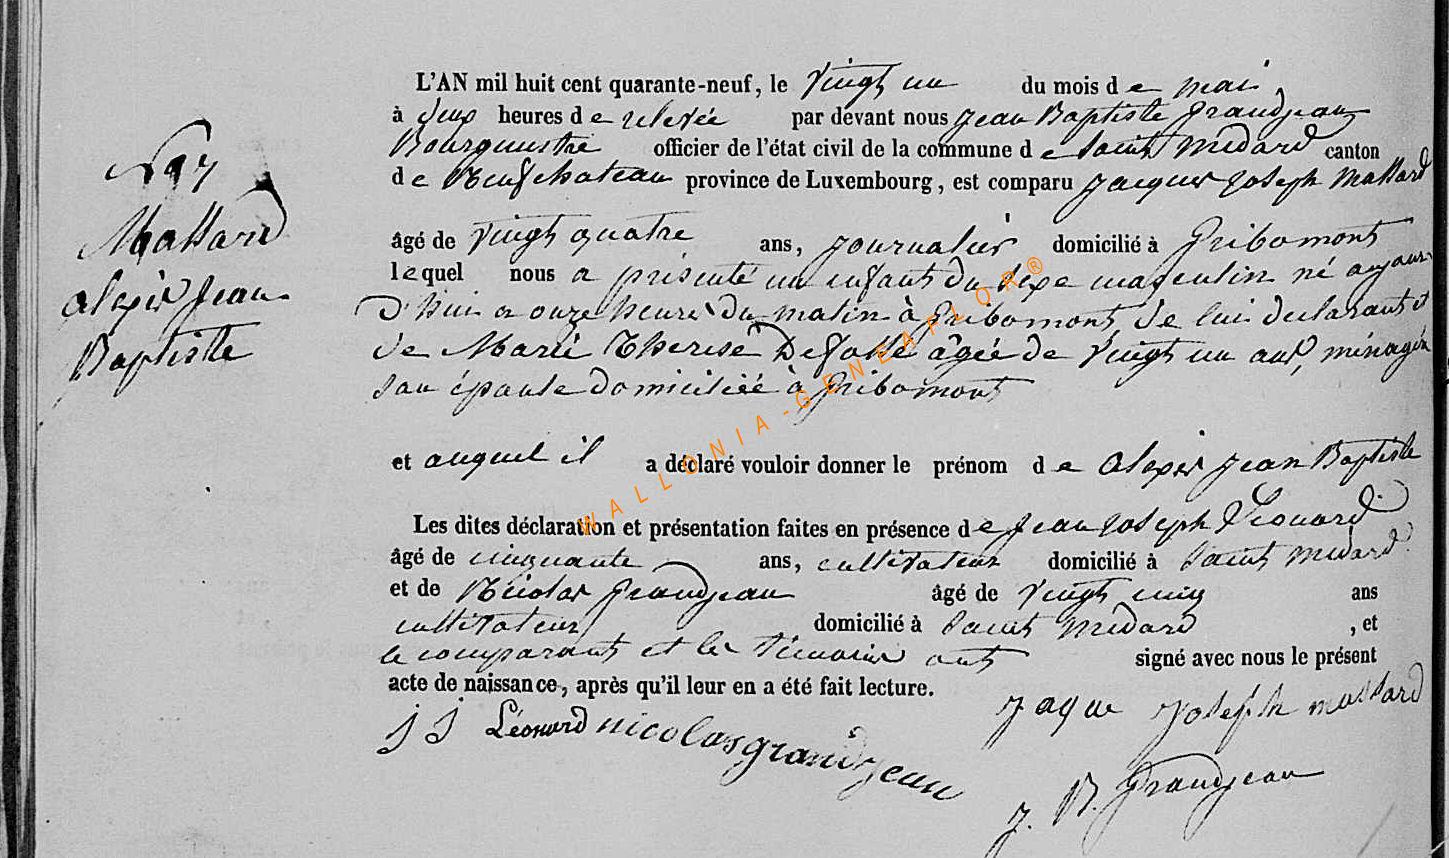 L'AN mil huit cent quarante-neuf, le vingt un du mois de mai
à deux heures de relevée par devant nous Jean Baptiste Grandjean
Bourgmestre officier de l'état civil de la commune de Saint Médard canton
de Neufchateau province de Luxembourg, est comparu Jacques Joseph
âgé de vingt quatre ans, journalier domicilié à Gribomont
lequel nous a présenté un enfant du sexe masculin né aujour
d'hui a onze heures du matin à Gribomont, de lui déclarant et
de Marie Therese âgée de vingt un ans, ménagère
son épouse domiciliée à Gribomont
et auquel il a déclaré vouloir donner le prénom de alexis Jean Baptiste
Les dites déclaration et présentation faites en présence de Jean Joseph Léonard
âgé de cinquante ans, cultivateur domicilié à Saint Médard
et de Nicolas Grandjean âgé de vingt cinq ans
cultivateur domicilié à Saint Médard , et
le comparant et les témoins ont signé avec nous le présent
acte de naissance, après qu'il leur en a été fait lecture.
alexis Jean
Baptiste
J J Léonard nicolas grandjean
Jaque Joseph
J. B. Grandjean
WALLONIA-GENEAFLOR®